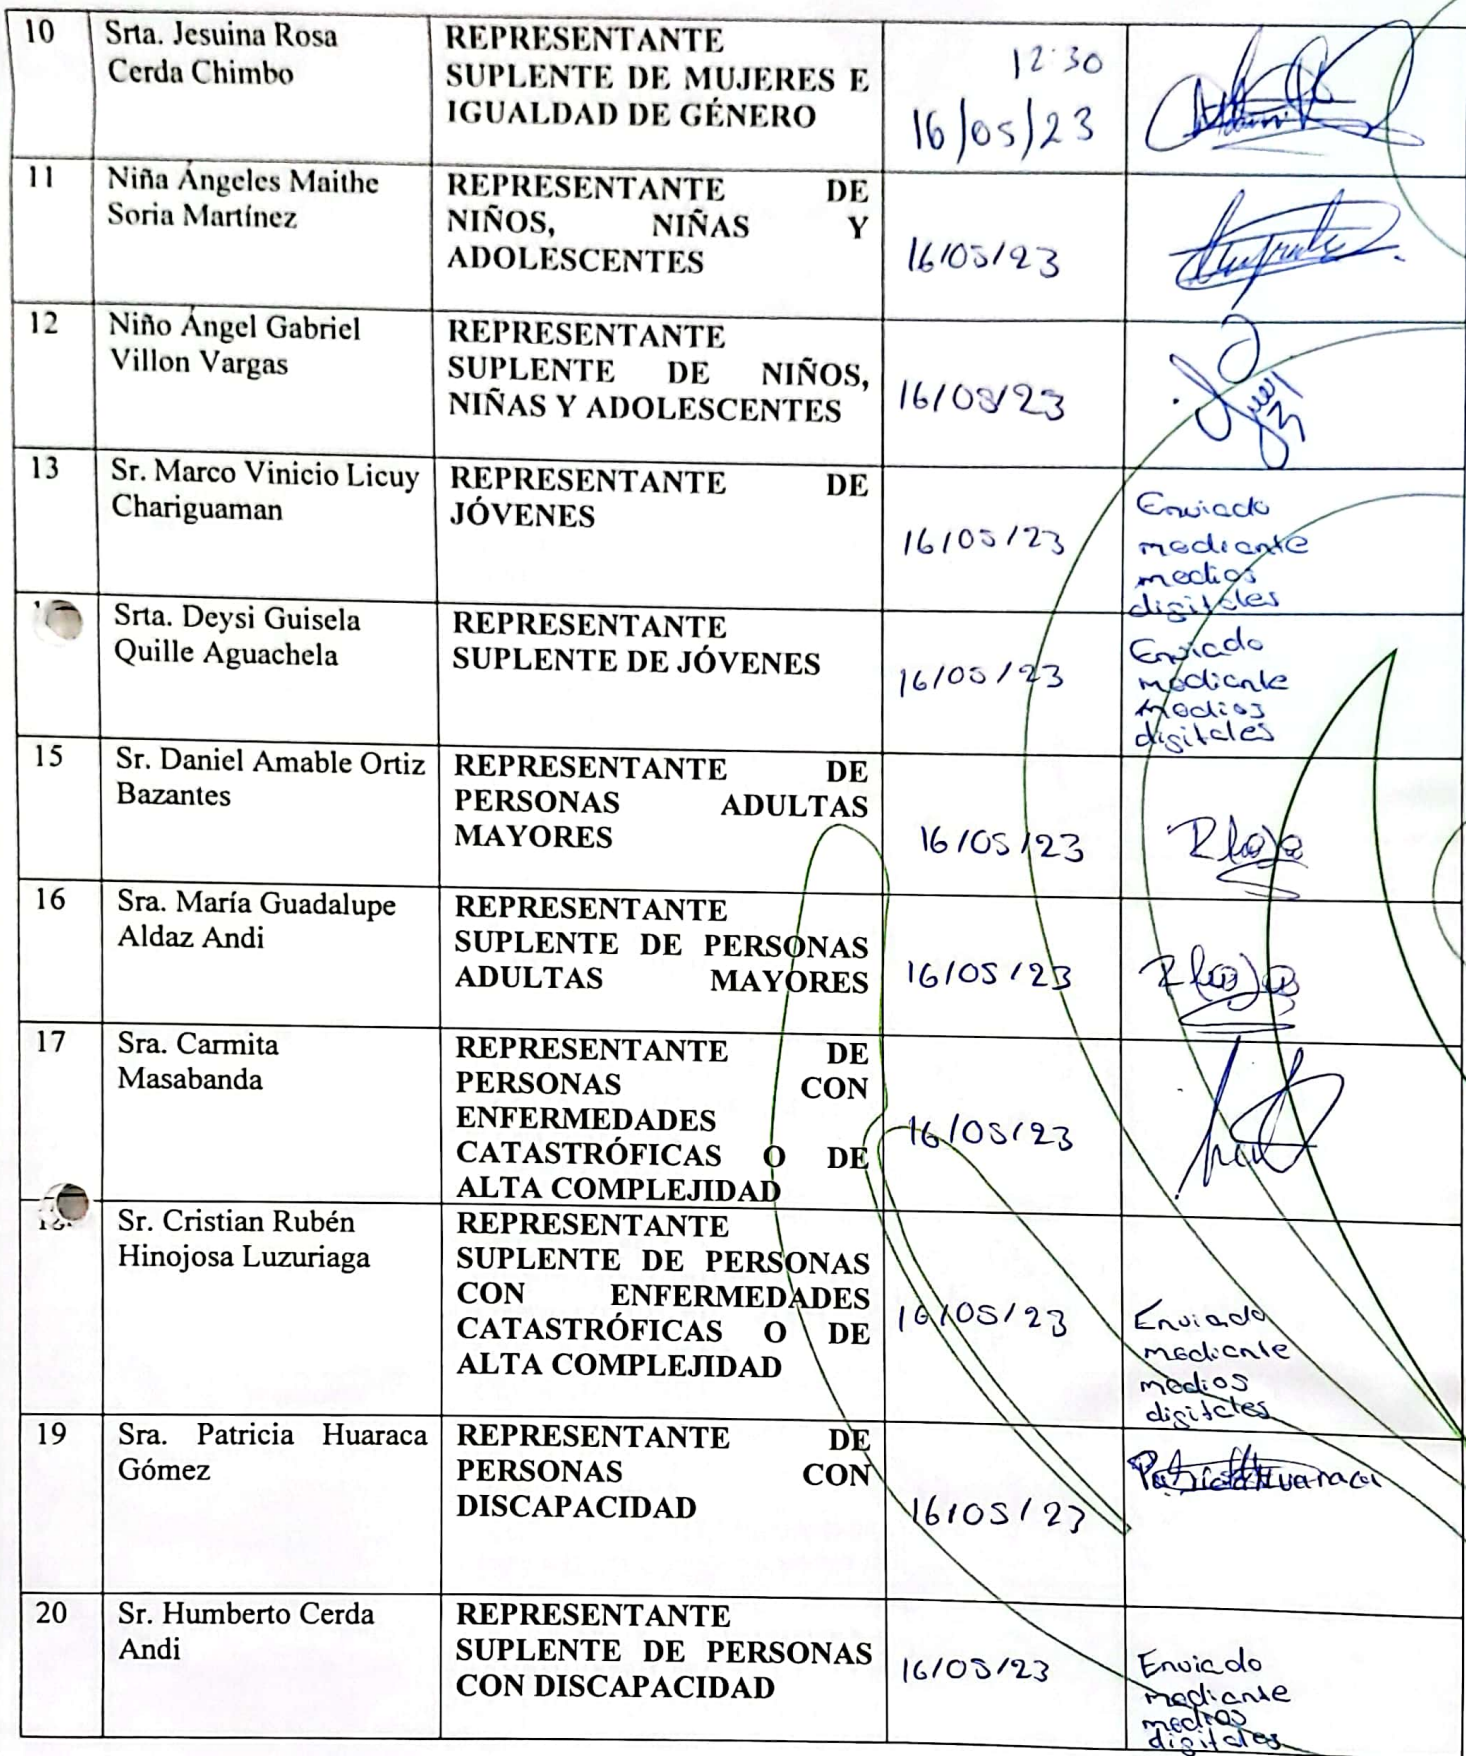 10
Srta. Jesuina Rosa
Cerda Chimbo
REPRESENTANTE
SUPLENTE DE MUJERES E
IGUALDAD DE GÉNERO
12:30
16/05/23
11
Niña Ángeles Maithe
Soria Martínez
REPRESENTANTE DE
NIÑOS, NIÑAS Y
ADOLESCENTES
16/05/23
12
Niño Ángel Gabriel
Villon Vargas
REPRESENTANTE
SUPLENTE DE NIÑOS,
NIÑAS Y ADOLESCENTES
16/05/23
13
Sr. Marco Vinicio Licuy
Chariguaman
REPRESENTANTE DE
JÓVENES
16/05/23
Enviado
mediante
medios
digitales
Srta. Deysi Guisela
Quille Aguachela
REPRESENTANTE
SUPLENTE DE JÓVENES
16/05/23
Enviado
mediante
medios
digitales
15
Sr. Daniel Amable Ortiz
Bazantes
REPRESENTANTE DE
PERSONAS ADULTAS
MAYORES
16/05/23
16
Sra. María Guadalupe
Aldaz Andi
REPRESENTANTE
SUPLENTE DE PERSONAS
ADULTAS MAYORES
16/05/23
17
Sra. Carmita
Masabanda
REPRESENTANTE DE
PERSONAS CON
ENFERMEDADES
CATASTRÓFICAS O DE
ALTA COMPLEJIDAD
16/05/23
Sr. Cristian Rubén
Hinojosa Luzuriaga
REPRESENTANTE
SUPLENTE DE PERSONAS
CON ENFERMEDADES
CATASTRÓFICAS O DE
ALTA COMPLEJIDAD
16/05/23
Enviado
mediante
medios
digitales
19
Sra. Patricia Huaraca
Gómez
REPRESENTANTE DE
PERSONAS CON
DISCAPACIDAD
16/05/23
Patricia Huaraca
20
Sr. Humberto Cerda
Andi
REPRESENTANTE
SUPLENTE DE PERSONAS
CON DISCAPACIDAD
16/05/23
Enviado
mediante
medios
digitales